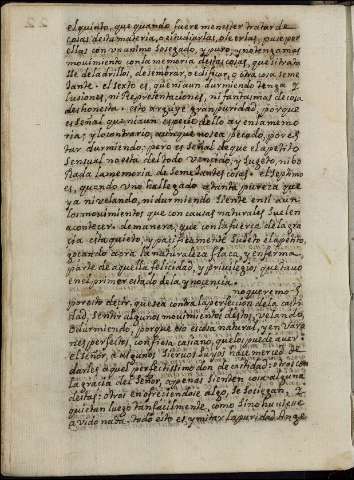 el quinto, que quando fuere menester tratar de
cosas desta materia, o estudiarlas, o leerlas, pase por
ellas con un animo sosegado, y puro, y no tenga mas
movimiento con la memoria destas cosas, que si trata
se de ladrillos, de sembrar, o edificar, o otra cosa seme
Jante. el sexto es, que ni aun durmiendo tenga y
lusiones, ni Representationes, ni fantasmas de cosa
deshonesta. esto arguye gran puridad, porque
es señal que ni aun especie dello ay en la memo
ria; y lo contrario, aunque no sea pecado, por es
tar durmiendo: pero es señal de que el apetito
sensual no esta del todo vencido, y sugeto, ni bo
Rada la memoria de semejantes cosas. el septimo
es, quando uno ha llegado a tanta pureza que
ya ni velando, ni durmiendo siente en si aun
los movimientos que con causas naturales suelen
acontecer. de manera, que con la fuerça de la gra
cia esta quieto, y pacificamente sugeto el apetito,
goçando aora la naturaleza flaca, y enferma
parte de aquella felicidad, y privilegios que tuvo
en el primer estado de la ynocencia.
no queremos
por esto decir, que sea contra la perfection de la casti
dad, sentir algunos movimientos destos, velando,
o durmiendo, porque eso es cosa natural, y en varo
nes perfectos, confiesa casiano, que los puede aver.
el señor, a algunos siervos suyos hace merced de
darles aquel perfectissimo don de castidad: otros con
la gracia del señor, apenas sienten cosa alguna
destas: otros en ofreciendose algo, se sosiegan, y
quietan luego tan facilmente, como si no huviesse
avido nada. todo esto es ymitar la puridad Ange